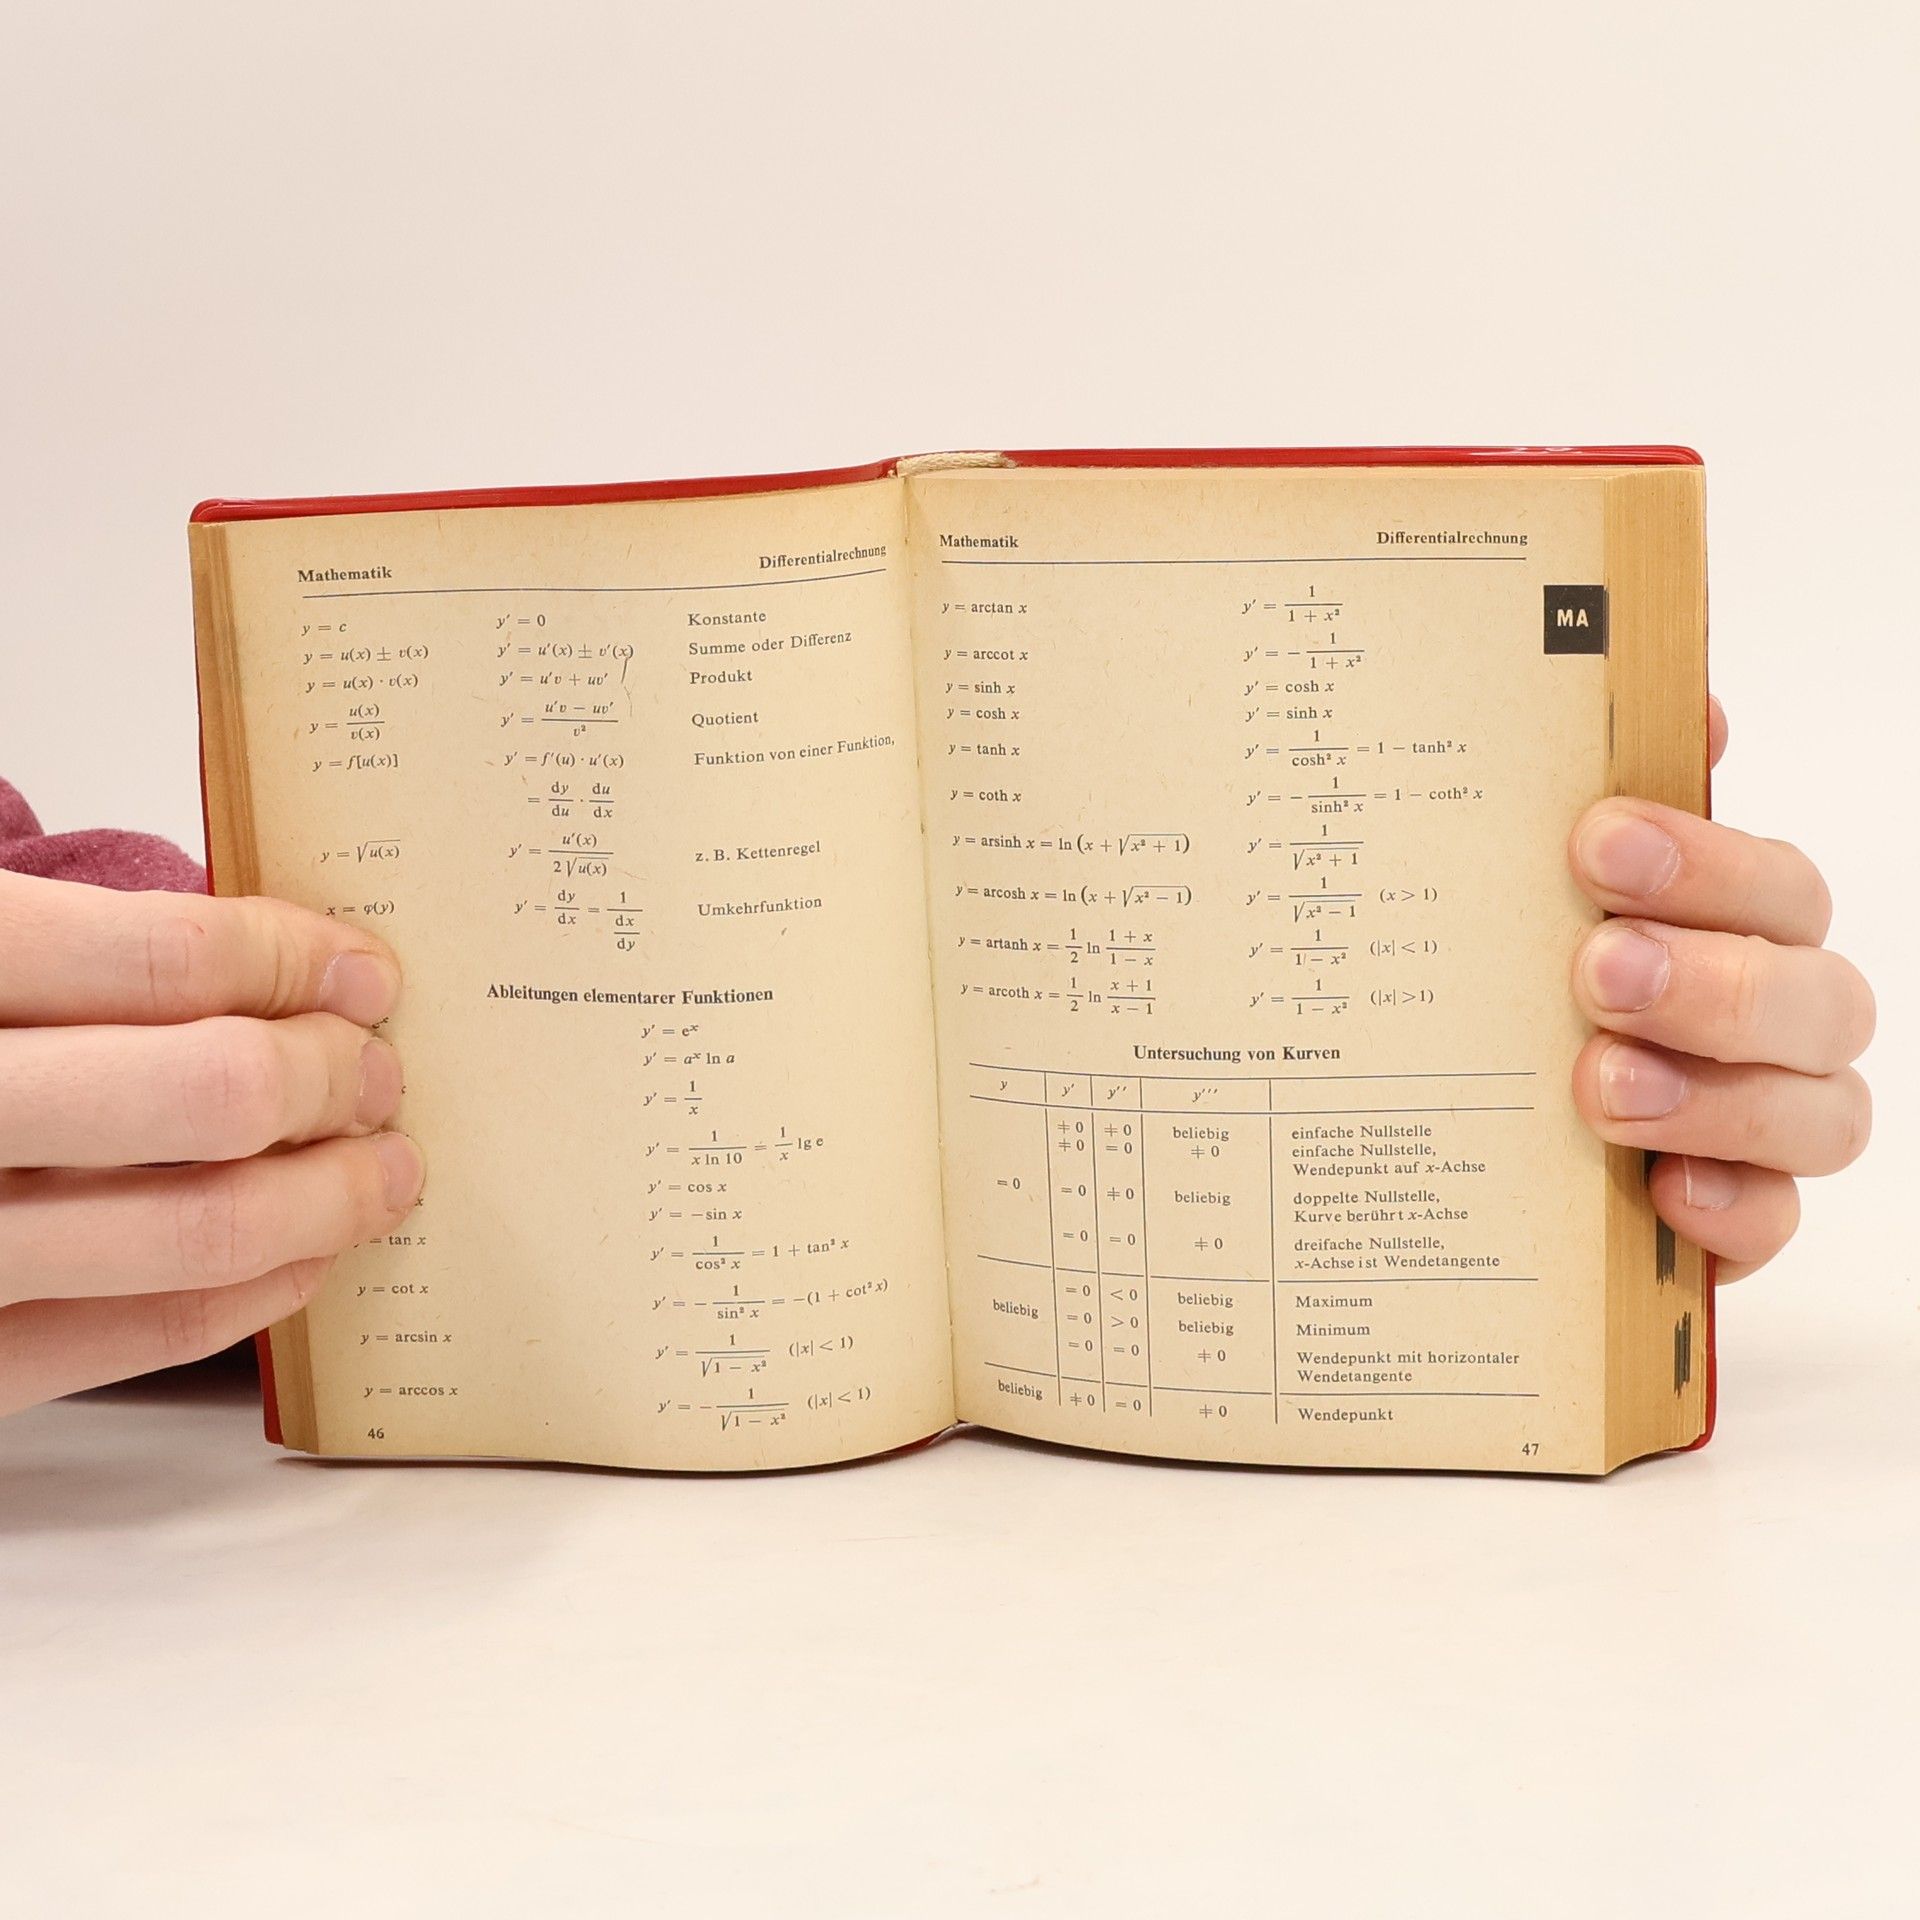 Mathematik Differentialrechnung
y = c y′ = 0 Konstante
y = u(x) ± v(x) y′ = u′(x) ± v′(x) Summe oder Differenz
y = u(x) · v(x) y′ = u′v + uv′ Produkt
y = u(x)/v(x) y′ = (u′v − uv′)/v² Quotient
y = f[u(x)] y′ = f′(u) · u′(x) Funktion von einer Funktion,
= dy/du · du/dx
y = √u(x) y′ = u′(x)/(2√u(x)) z. B. Kettenregel
x = φ(y) y′ = dy/dx = 1/(dx/dy) Umkehrfunktion
Ableitungen elementarer Funktionen
y′ = eˣ
y′ = aˣ ln a
y′ = 1/x
y′ = 1/(x ln 10) = 1/x lg e
y′ = cos x
x y′ = −sin x
= tan x y′ = 1/cos² x = 1 + tan² x
y = cot x y′ = −1/sin² x = −(1 + cot² x)
y = arcsin x y′ = 1/√(1 − x²) (|x| < 1)
y = arccos x y′ = −1/√(1 − x²) (|x| < 1)
46
Mathematik Differentialrechnung
MA
y = arctan x y′ = 1/(1 + x²)
y = arccot x y′ = −1/(1 + x²)
y = sinh x y′ = cosh x
y = cosh x y′ = sinh x
y = tanh x y′ = 1/cosh² x = 1 − tanh² x
y = coth x y′ = −1/sinh² x = 1 − coth² x
y = arsinh x = ln (x + √(x² + 1)) y′ = 1/√(x² + 1)
y = arcosh x = ln (x + √(x² − 1)) y′ = 1/√(x² − 1) (x > 1)
y = artanh x = 1/2 ln (1 + x)/(1 − x) y′ = 1/(1 − x²) (|x| < 1)
y = arcoth x = 1/2 ln (x + 1)/(x − 1) y′ = 1/(1 − x²) (|x| > 1)
Untersuchung von Kurven
y y′ y′′ y′′′
≠ 0 ≠ 0 beliebig einfache Nullstelle
≠ 0 = 0 ≠ 0 einfache Nullstelle,
Wendepunkt auf x-Achse
= 0 = 0 ≠ 0 beliebig doppelte Nullstelle,
Kurve berührt x-Achse
= 0 = 0 ≠ 0 dreifache Nullstelle,
x-Achse ist Wendetangente
beliebig = 0 < 0 beliebig Maximum
= 0 > 0 beliebig Minimum
= 0 = 0 ≠ 0 Wendepunkt mit horizontaler
Wendetangente
beliebig ≠ 0 = 0 ≠ 0 Wendepunkt
47